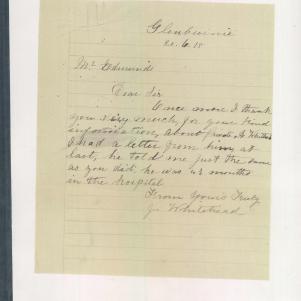 Glenburnie
22.6.18
Mr Edmunds
Dear Sir
Once more I thank
you very much, for your kind
information, about
I had a letter from him at
last, he told me just the same
as you did, he was 4½ months
in the Hospital
From Yours Truly
J. Whitehead